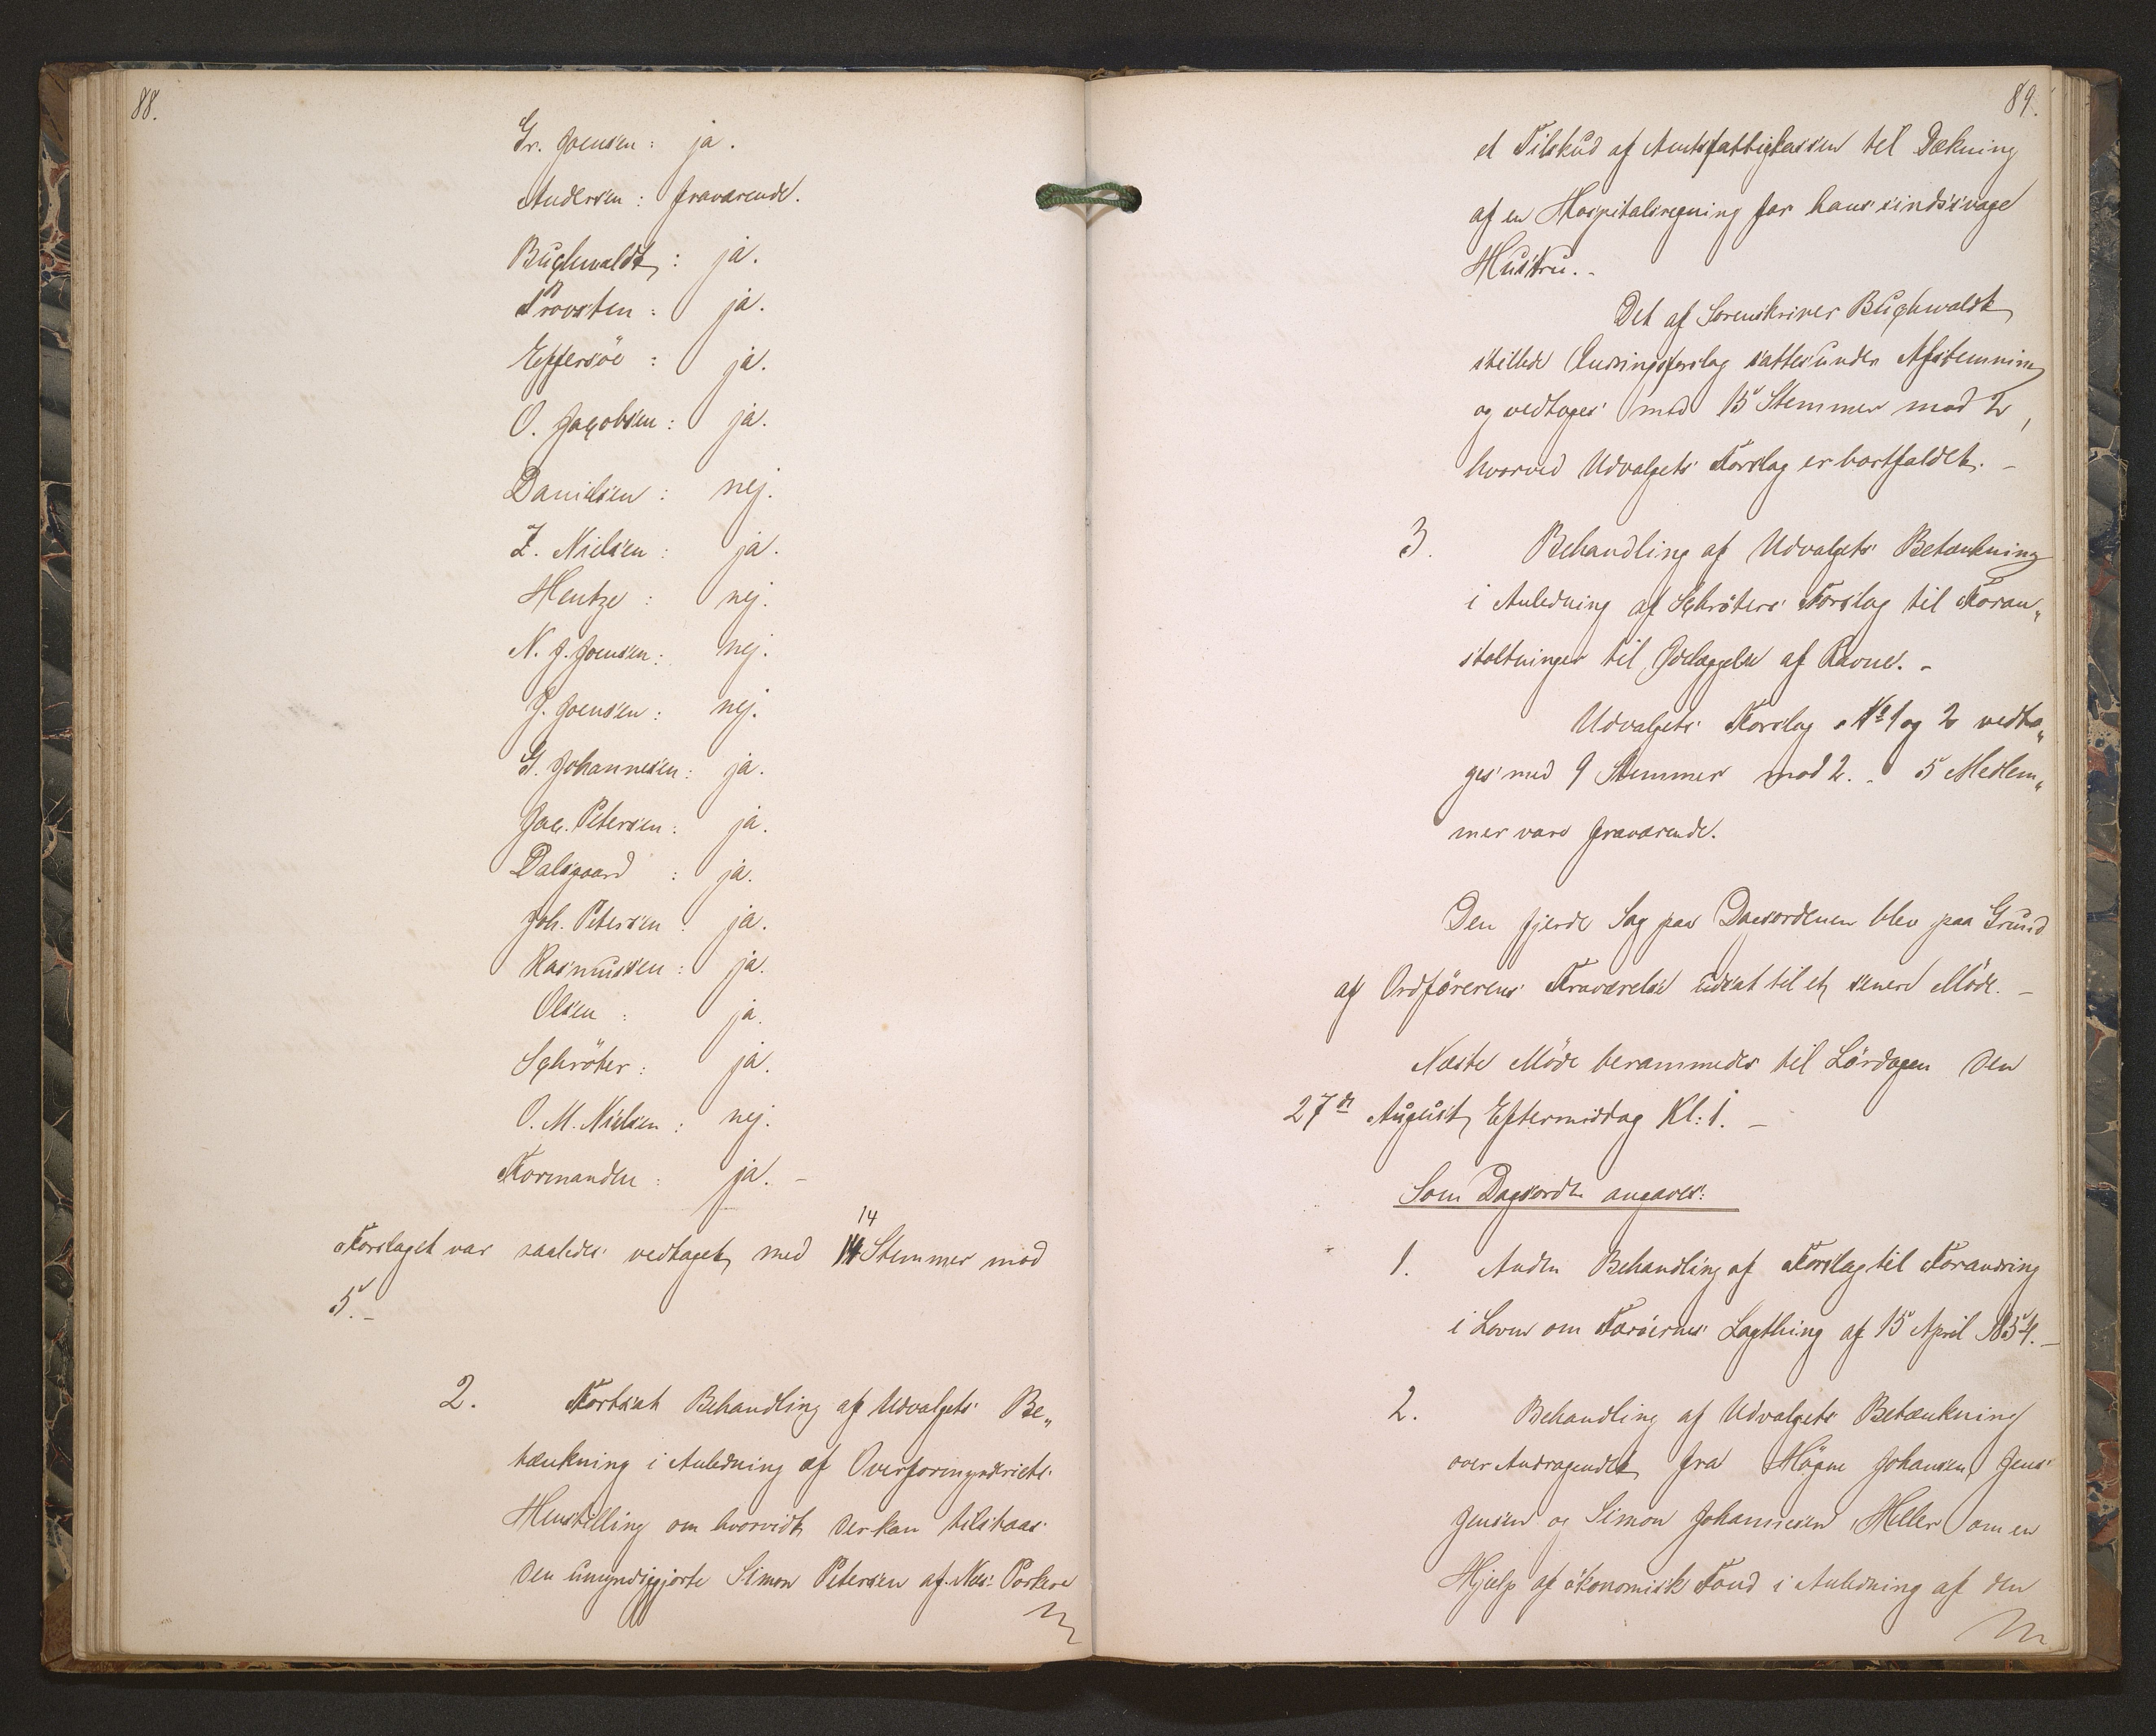 88.
Gr. Joensen: ja.
Andersen: fraværende.
Buchwaldt: ja.
Provsten: ja.
Effersöe: ja.
O. Jacobsen: ja.
Danielsen: nej.
Z. Nielsen: ja.
Hentze: nej.
N. J. Joensen: nej.
J. Joensen: nej.
G. Johannesen: ja.
Jac. Petersen: ja.
Dalsgaard: ja.
Joh. Petersen: ja.
Rasmussen: ja.
Olsen: ja.
Schröter: ja.
O. M. Nielsen: nej.
Formanden: ja. –
14
Forslaget var saaledes vedtaget med 14 Stemmer mod
5. –
2. Fortsat Behandling af Udvalgets Be„
tænkning i Anledning af Overformynderiets
Henstilling om hvorvidt der kan tilstaas
den umyndiggjorte Simon Petersen af Næs Porkere
89.
et Tilskud af Amtsfattigkassen til Dækning
af en Hospitalsregning for hans sindssvage
Hustru. –
Det af Sorenskriver Buchwaldt
stillede Ændringsforslag sattes under Afstemning
og vedtoges med 15 Stemmer mod 2,
hvorved Udvalgets Forslag er bortfaldet. –
3. Behandling af Udvalgets Betænkning
i Anledning af Schröters Forslag til Foran„
staltninger til Ødelæggelse af Ravne. –
Udvalgets Forslag No 1 og 2 vedto„
ges med 9 Stemmer mod 2. – 5 Medlem„
mer vare fraværende.
Den fjerde Sag paa Dagsordenen blev paa Grund
af Ordförerens Fraværelse udsat til et senere Möde. –
Næste Möde berammedes til Lördagen den
27de August Eftermiddag Kl: 1. –
Som Dagsorden angaves:
1. Anden Behandling af Forslag til Forandring
i Loven om Færöernes Lagthing af 15 April 1854. –
2. Behandling af Udvalgets Betænkning
over Andragendet fra Högne Johansen, Jens
Jensen og Simon Johannesen, Heller om en
Hjælp af ökonomisk Fond i Anledning af den